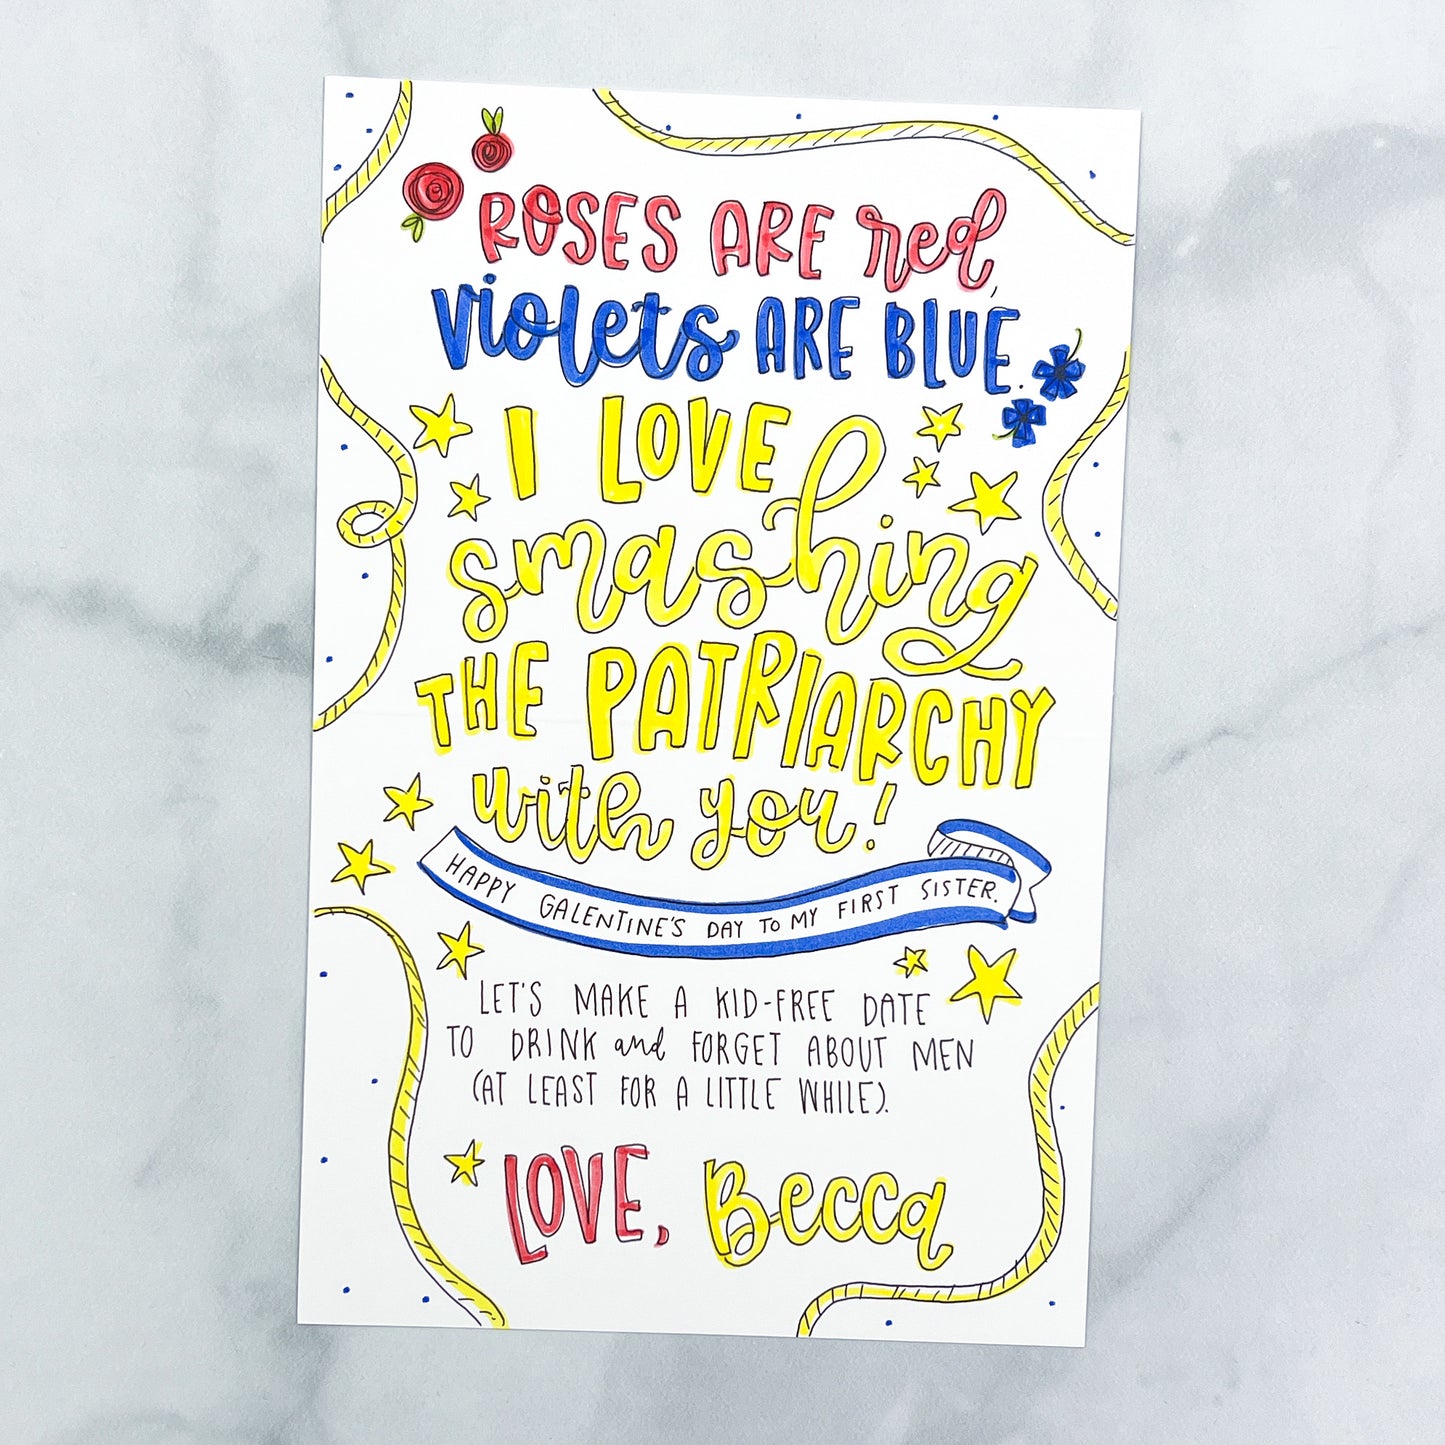 ROSES ARE red,
violets ARE BLUE.
I LOVE
smashing
THE PATRIARCHY
with you!
HAPPY GALENTINE'S DAY TO MY FIRST SISTER.
LET'S MAKE A KID-FREE DATE
TO DRINK and FORGET ABOUT MEN
(AT LEAST FOR A LITTLE WHILE).
LOVE, Becca